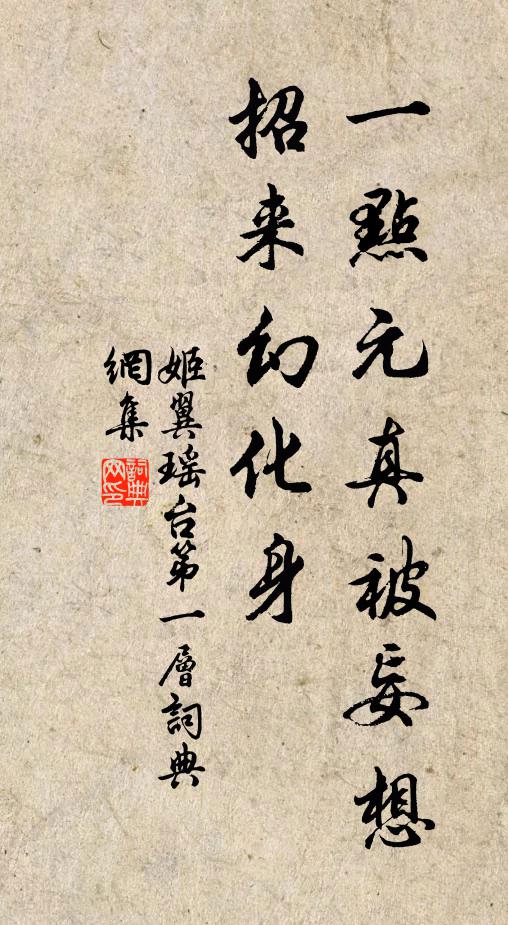 一點元真被妄想
招来幻化身
姬翼瑶台第一層詞典
網集
詞典
网印